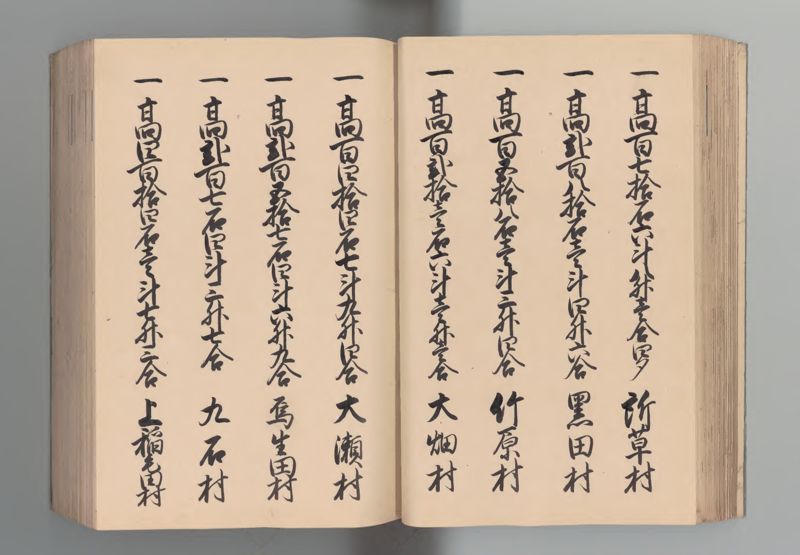 一高百七拾石六斗八升壱合四夕 所草村
一高弐百八拾石壱斗四升六合 黒田村
一高百五拾八石壱斗三升四合 竹原村
一高百弐拾壱石六斗壱升壱合 大畑村
一高百四拾四石七斗九升四合 大瀬村
一高弐百五拾七石四斗六升九合 馬生田村
一高弐百七石四斗三升七合 九石村
一高四百拾四石壱斗七升二合 上稲毛田村